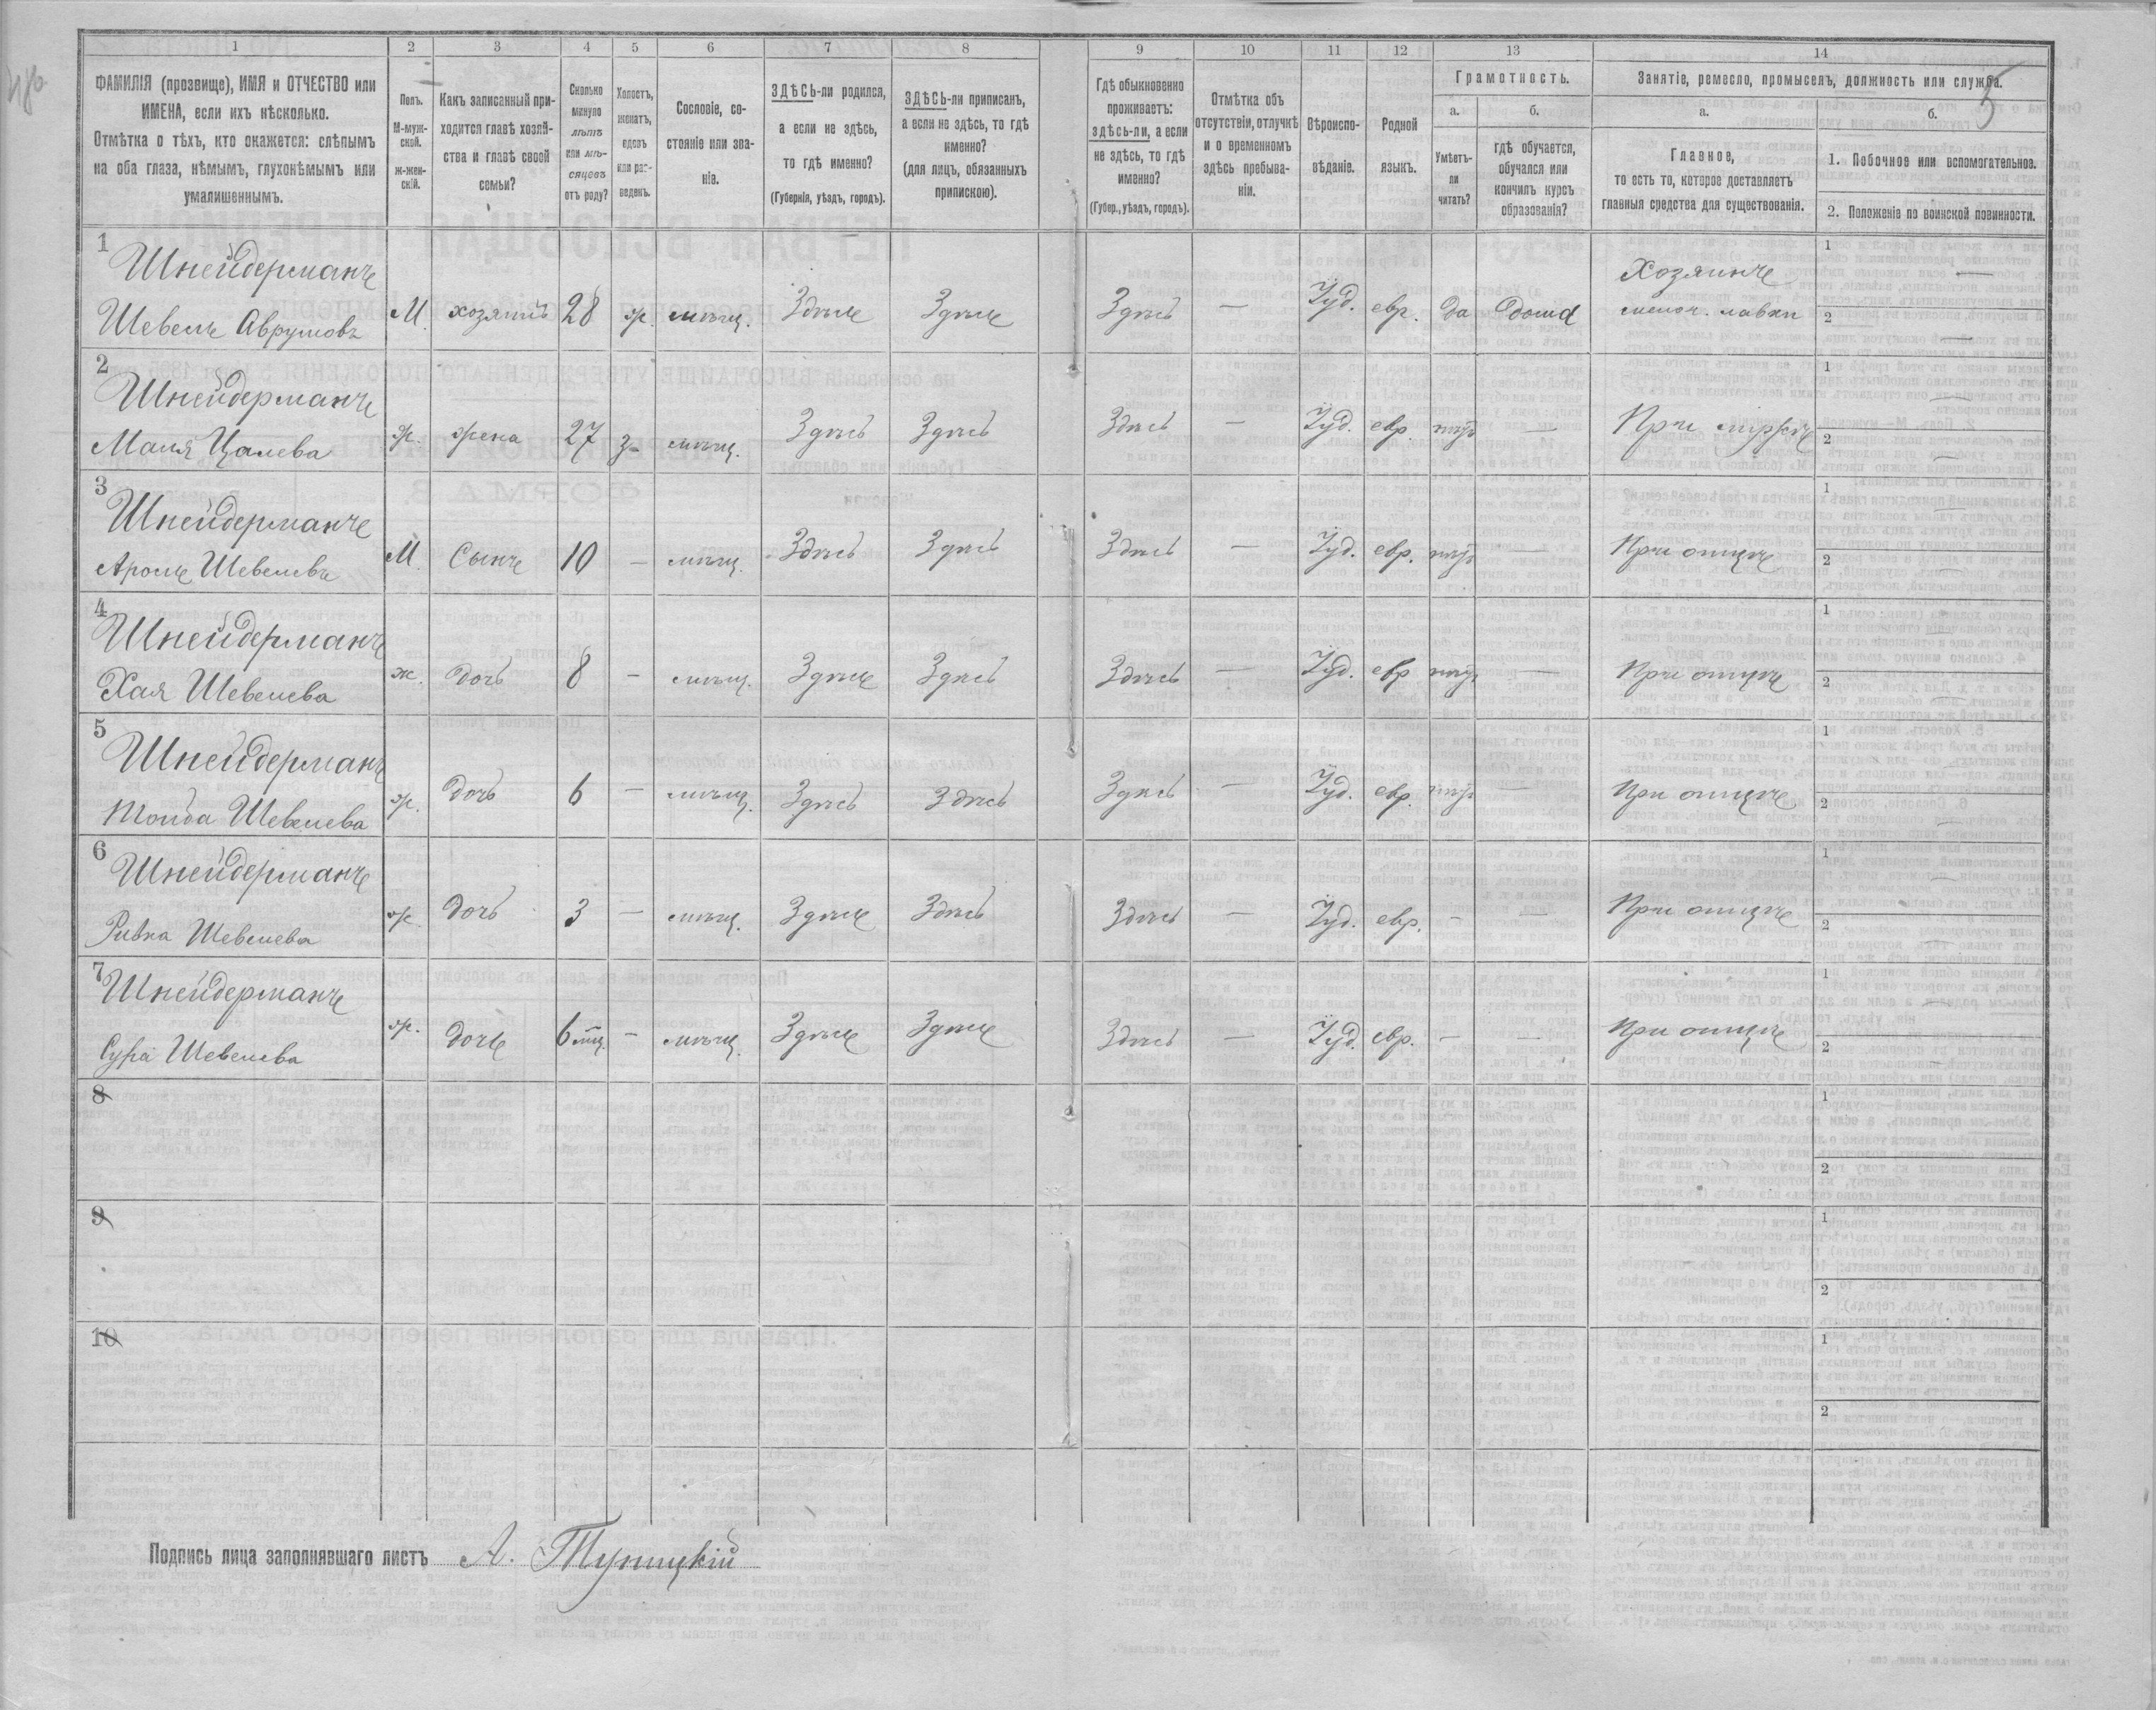 1 2 3 4 5 6 7 8 9 10 11 12 13 14
ФАМИЛІЯ (прозвище), ИМЯ и ОТЧЕСТВО или
ИМЕНА, если ихъ нѣсколько.
Отмѣтка о тѣхъ, кто окажется: слѣпымъ
на оба глаза, нѣмымъ, глухонѣмымъ или
умалишеннымъ.
Полъ.
М-муж-
ской.
ж-жен-
скій.
Какъ записанный при-
ходится главѣ хозяй-
ства и главѣ своей
семьи?
Сколько
минуло
лѣтъ
или мѣ-
сяцевъ
отъ роду?
Холостъ,
женатъ,
вдовъ
или раз-
веденъ.
Сословіе, со-
стояніе или зва-
ніе.
ЗДѢСЬ-ли родился,
а если не здѣсь,
то гдѣ именно?
(Губернія, уѣздъ, городъ).
ЗДѢСЬ-ли приписанъ,
а если не здѣсь, то гдѣ
именно?
(для лицъ, обязанныхъ
припискою).
Гдѣ обыкновенно
проживаетъ:
здѣсь-ли, а если
не здѣсь, то гдѣ
именно?
(Губер., уѣздъ, городъ).
Отмѣтка объ
отсутствіи, отлучкѣ
и о временномъ
здѣсь пребыва-
ніи.
Вѣроиспо-
вѣданіе.
Родной
языкъ.
Грамотность.
а. б.
Умѣетъ-
ли
читать?
гдѣ обучается,
обучался или
кончилъ курсъ
образованія?
Занятіе, ремесло, промыселъ, должность или служба.
5
а. б.
Главное,
то есть то, которое доставляетъ
главныя средства для существованія.
1. Побочное или вспомогательное.
2. Положеніе по воинской повинности.
1 Шнейдерманъ Хозяинъ 1 —
Шевель Аврумовъ М. хозяинъ 28 ж. мѣщ. Здѣсь Здѣсь Здѣсь — Іуд. евр. да дома мелоч. лавки 2 —
2 Шнейдерманъ 1 —
Маля Цалева ж. жена 27 з— мѣщ. Здѣсь Здѣсь Здѣсь — Іуд. евр. — При мужѣ 2 —
3 Шнейдерманъ 1 —
Аронъ Шевелевъ М. Сынъ 10 — мѣщ. Здѣсь Здѣсь Здѣсь — Іуд. евр. При отцѣ 2 —
4 Шнейдерманъ 1 —
Хая Шевелева ж. дочь 8 — мѣщ. Здѣсь Здѣсь Здѣсь — Іуд. евр — При отцѣ 2
5 Шнейдерманъ 1 —
Шевелева ж. дочь 6 — мѣщ. Здѣсь Здѣсь Здѣсь — Іуд. евр. — При отцѣ 2 —
6 Шнейдерманъ 1 —
Ривка Шевелева ж. дочь 3 — мѣщ. Здѣсь Здѣсь Здѣсь — Іуд. евр. — — При отцѣ 2 —
7 Шнейдерманъ 1 —
Сура Шевелева ж. дочь 6 мѣщ. Здѣсь Здѣсь Здѣсь — Іуд. евр. — — При отцѣ 2 —
8 1
2
9 1
2
10 1
2
Подпись лица заполнявшаго листъ А.